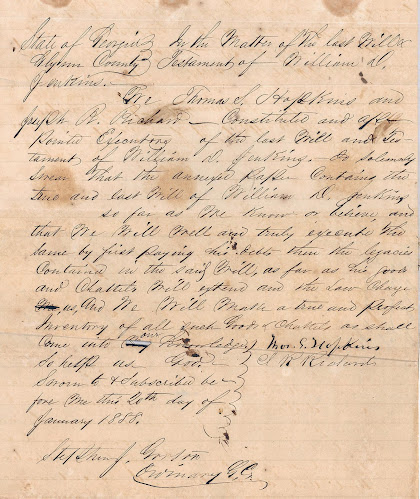 State of Georgia } In the Matter of the last Will &
Glynn County } Testament of William D.
Jenkins.
We Thomas S. Hopkins and
Joseph R. — Constituted and Ap-
pointed Executors of the last Will and Tes
tament of William D. Jenkins. do Solemnly
Swear that the annexed Paper Contains the
true and last Will of William D. Jenkins
so far as We Know or believe, and
that We Will Well and truly execute the
same by first paying his debts then the legacies
Contained in the said Will, as far as his goods
and Chattels Will extend and the Law Charge
us, And We Will Make a true and perfect
Inventory of all such Goods & Chattels as shall
Come into our Knowledge } Thos. S. Hopkins
So help us God. } J. R.
Sworn to & Subscribed be
fore Me this 20th day of
January 1888.
Stephen J. Gorton
Ordinary G. Co.